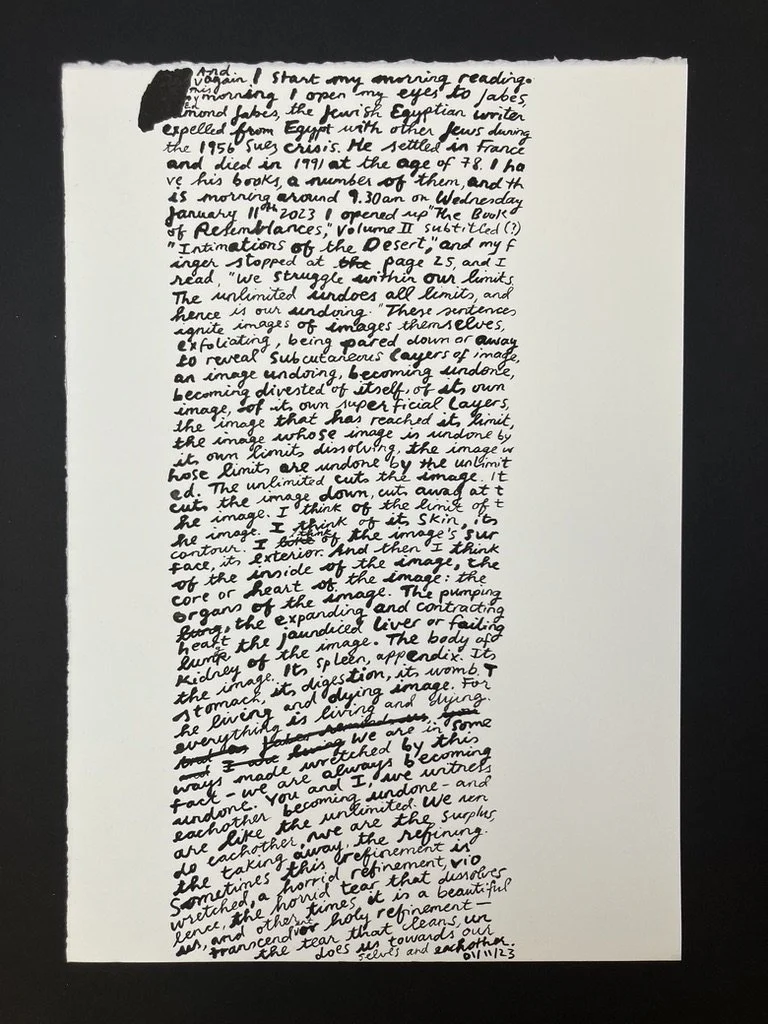 And
again I start my morning reading.
this morning I open my eyes to Jabes,
Edmond Jabes, the Jewish Egyptian writer
expelled from Egypt with other Jews during
the 1956 Sues crisis. He settled in France
and died in 1991 at the age of 78. I ha
ve his books, a number of them, and th
is morning around 9.30am on Wednesday
January 11th 2023 I opened up "The Book
of Resemblances," volume II subtitled (?)
"Intimations of the Desert," and my f
inger stopped at the page 25, and I
read, "We struggle within our limits.
The unlimited undoes all limits, and
hence is our undoing." These sentences
ignite images of images themselves,
exfoliating, being pared down or away
to reveal subcutaneous layers of image,
an image undoing, becoming undone,
becoming divested of itself, of its own
image, of its own superficial layers,
the image that has reached its limit,
the image whose image is undone by
its own limits dissolving, the image w
hose limits are undone by the unlimit
ed. The unlimited cuts the image. It
cuts the image down, cuts away at t
he image. I think of the limit of t
he image. I think of its skin, its
contour. I think of the image's sur
face, its exterior. And then I think
of the inside of the image, the
core or heart of the image: the
organs of the image. The pumping
lung, the expanding and contracting
heart the jaundiced liver or failing
kidney of the image. The body of
the image. Its spleen, appendix. Its
stomach, its digestion, its womb. T
he living and dying image. For
everything is living and dying.
And as Jabes reminds us
and I are living We are in some
ways made wretched by this
fact – we are always becoming
undone. You and I, we witness
eachother becoming undone – and
are like the unlimited. We un
do eachother, we are the surplus,
the taking away, the refining.
Sometimes this refinement is
wretched, a horrid refinement, vio
lence, the horrid tear that dissolves
us, and other times it is a beautiful
transcendent or holy refinement –
the tear that cleans, un
does us towards our
selves and eachother.
01/11/23